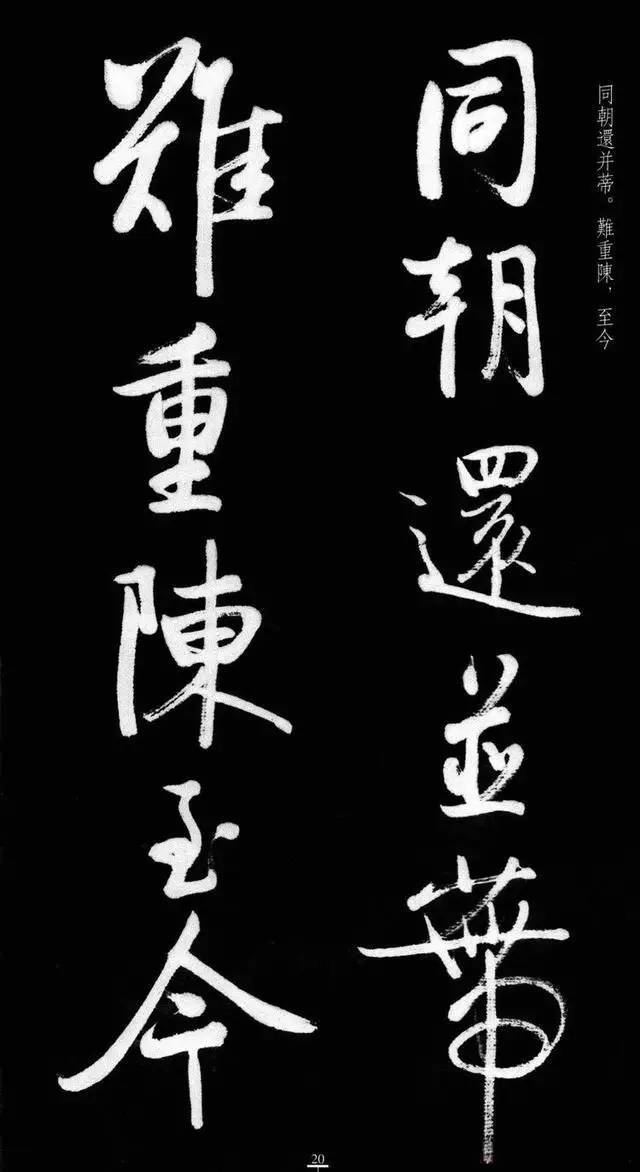 同朝還并蒂。難重陳，至今
同朝還並蒂
難重陳至今
20